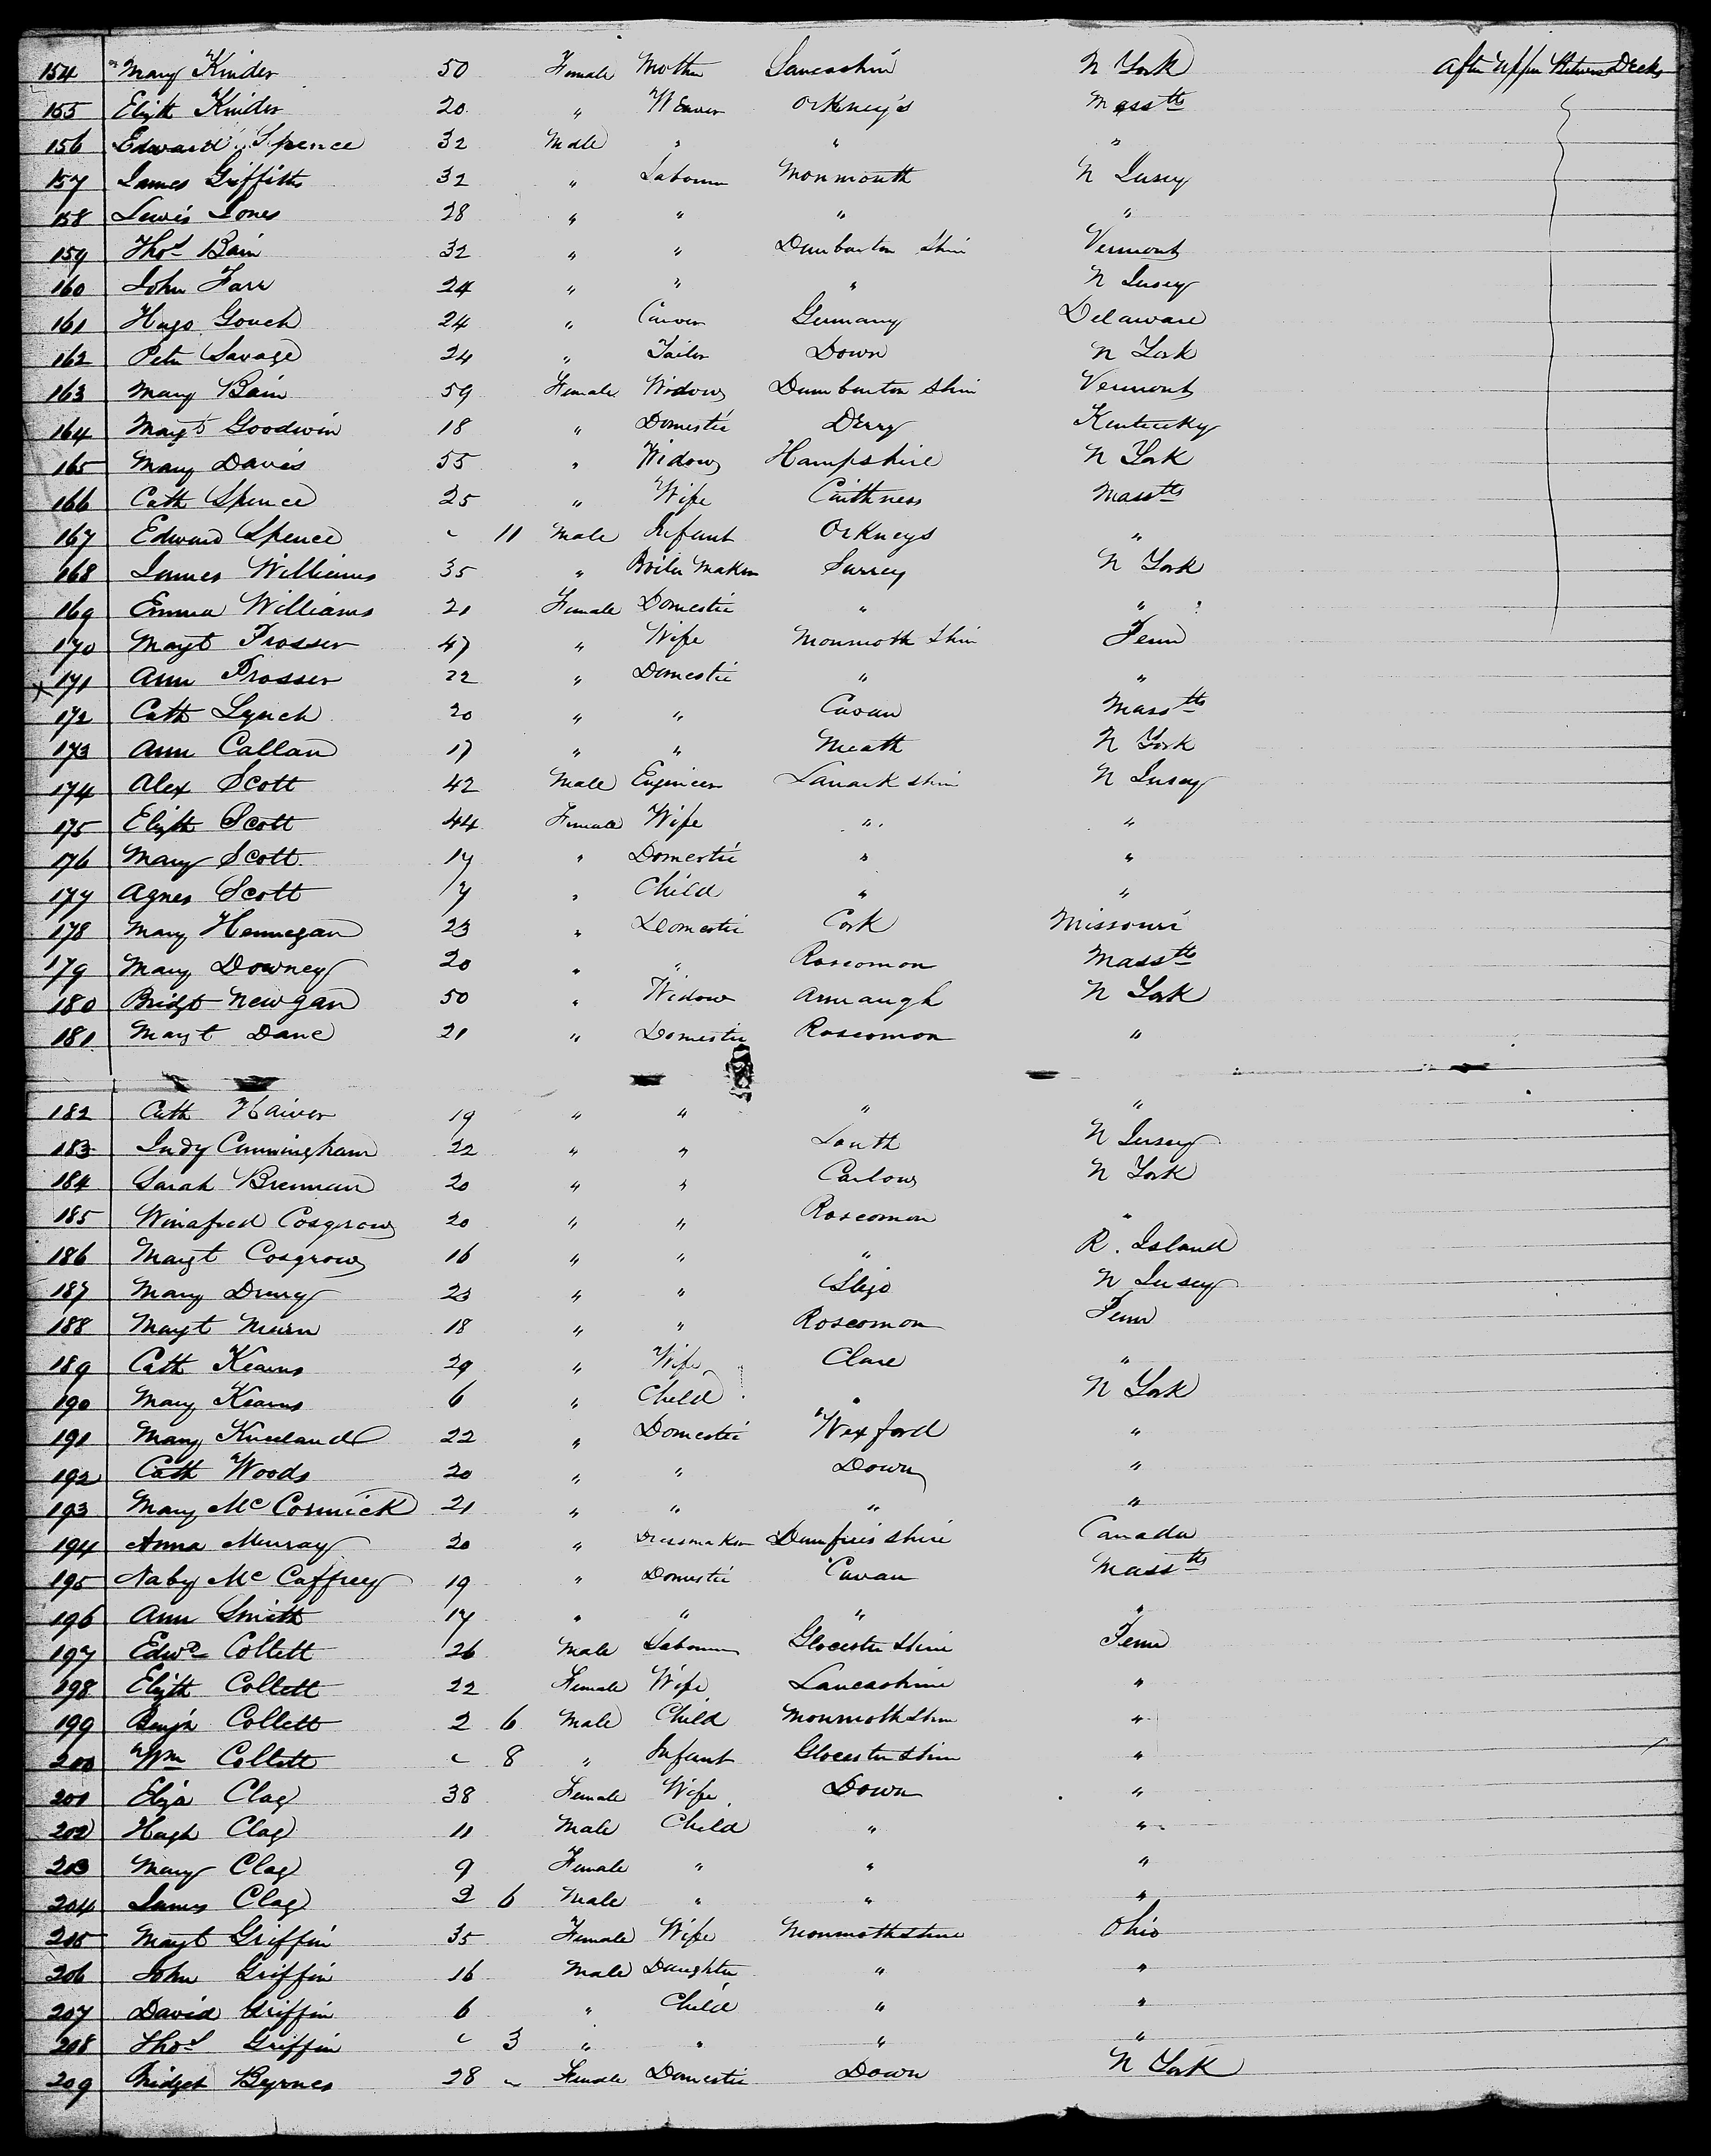 154 Mary Kinder 50 Female Mother Lancashire N York After Upper Between Decks
155 Elizth Kinder 20 " Weaver Orkney's Masstts
156 Edward Spence 32 Male " " "
157 James Griffiths 32 " Labourer Monmouth N Jersey
158 Lewis Jones 28 " " " "
159 Thos Bain 32 " " Dumbarton Shire Vermont
160 John Farr 24 " " " N Jersey
161 Hugo Gouch 24 " Carver Germany Delaware
162 Peter Savage 24 " Tailor Down N York
163 Mary Bain 59 Female Widow Dumbarton Shire Vermont
164 Margt Goodwin 18 " Domestic Derry Kentucky
165 Mary Davis 55 " Widow Hampshire N York
166 Cath Spence 25 " Wife Caithness Masstts
167 Edward Spence " 11 Male Infant Orkneys "
168 James Williams 35 " Boiler Maker Surrey N York
169 Emma Williams 21 Female Domestic " "
170 Margt Prosser 47 " Wife Monmoth Shire Penn
171 Ann Prosser 22 " Domestic " "
172 Cath Lynch 20 " " Cavan Masstts
173 Ann Callan 17 " " Meath N York
174 Alex Scott 42 Male Engineer Lanark shire N Jersey
175 Elizth Scott 44 Female Wife " "
176 Mary Scott 14 " Domestic " "
177 Agnes Scott 7 " Child " "
178 Mary Hennegan 23 " Domestic Cork Missouri
179 Mary Downey 20 " " Roscomon Masstts
180 Bridgt Newgan 50 " Widow Armaugh N York
181 Margt Dane 21 " Domestic Roscomon "
182 Cath 19 " " " "
183 Judy Cunningham 22 " " Louth N Jersey
184 Sarah Brennan 20 " " Carlow N York
185 Winafred Cosgrow 20 " " Roscomon "
186 Margt Cosgrow 16 " " " R. Island
187 Mary Drury 23 " " Sligo N Jersey
188 Margt 18 " " Roscomon Penn
189 Cath Kearns 29 " Wife Clare "
190 Mary Kearns 6 " Child " N York
191 Mary Kneeland 22 " Domestic Wexford "
192 Cath Woods 20 " " Down "
193 Mary Mc Cormick 21 " " " "
194 Anna Murray 20 " Dressmaker Dumfries shire Canada
195 Naby Mc Caffrey 19 " Domestic Cavan Masstts
196 Ann Smith 17 " " " "
197 Edwd Collett 26 Male Labourer Glocester Shire Penn
198 Elizth Collett 22 Female Wife Lancashire "
199 Benjn Collett 2 6 Male Child Monmoth Shire "
200 Wm Collett " 8 " Infant Glocester Shire "
201 Eliza Clag 38 Female Wife Down "
202 Hugh Clag 11 Male Child " "
203 Mary Clag 9 Female " " "
204 James Clag 2 6 Male " " "
205 Margt Griffin 35 Female Wife Monmothshire Ohio
206 John Griffin 16 Male Daughter " "
207 David Griffin 6 " Child " "
208 Thos Griffin " 3 " " " "
209 Bridget Byrnes 28 " Female Domestic Down N York